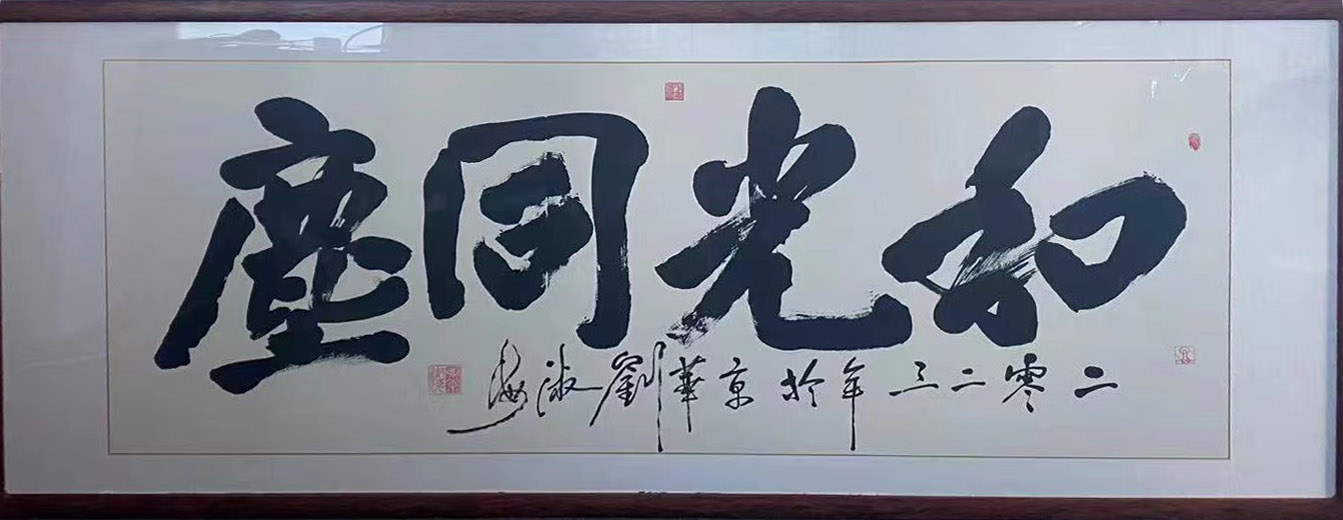 和光同塵
二零二三年於京華劉淑梅